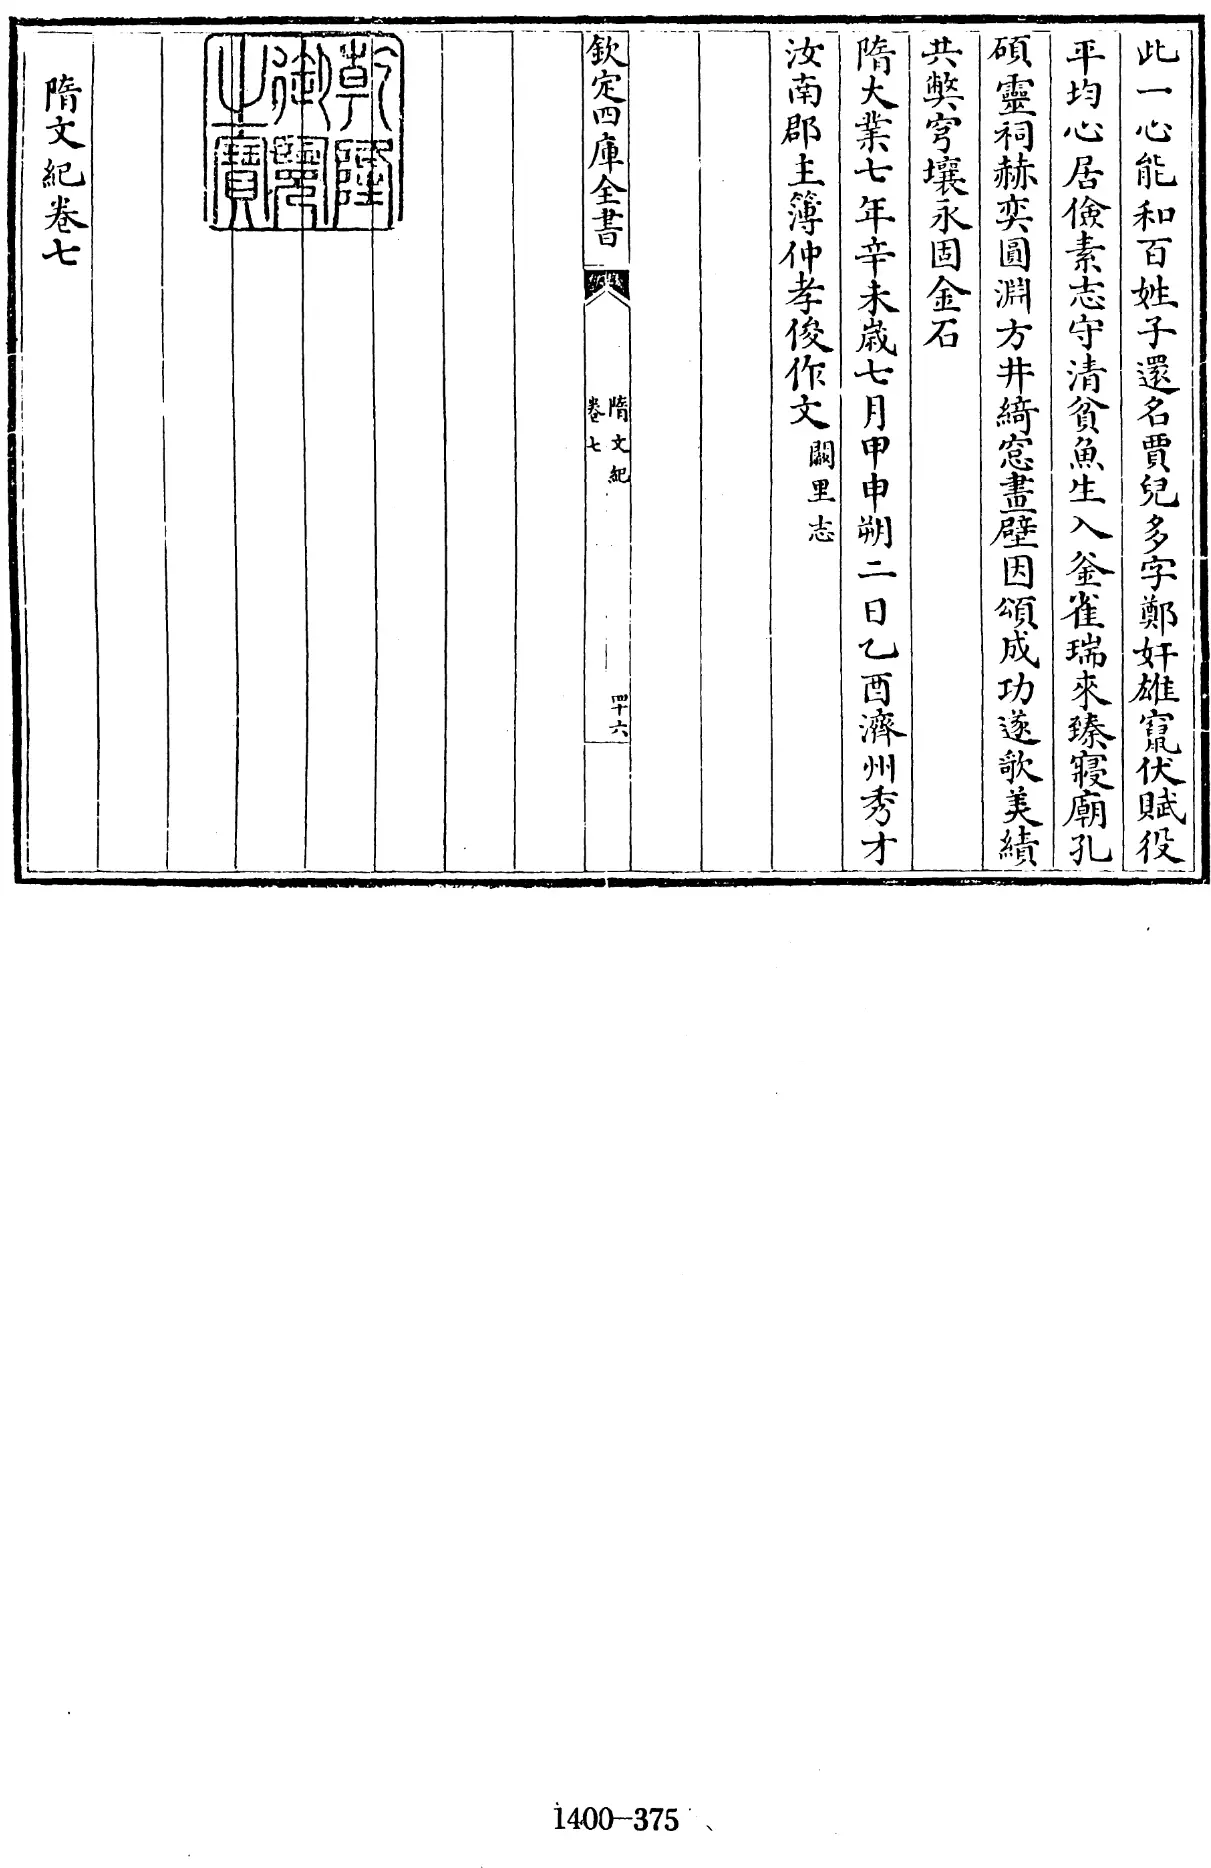 此一心能和百姓子還名賈兒多字鄭奸雄竄伏賦役
平均心居儉素志守清貧魚生入釜雀瑞來臻寢廟孔
碩靈祠赫奕圓淵方井綺窓畫壁因頌成功遂歌美績
共弊穹壤永固金石
隋大業七年辛未歳七月甲申朔二日乙酉濟州秀才
汝南郡主簿仲孝俊作文 闕里志
欽定四庫全書
隋文紀
卷七
四十六
乾隆
御覽
之寶
隋文紀卷七
1400-375